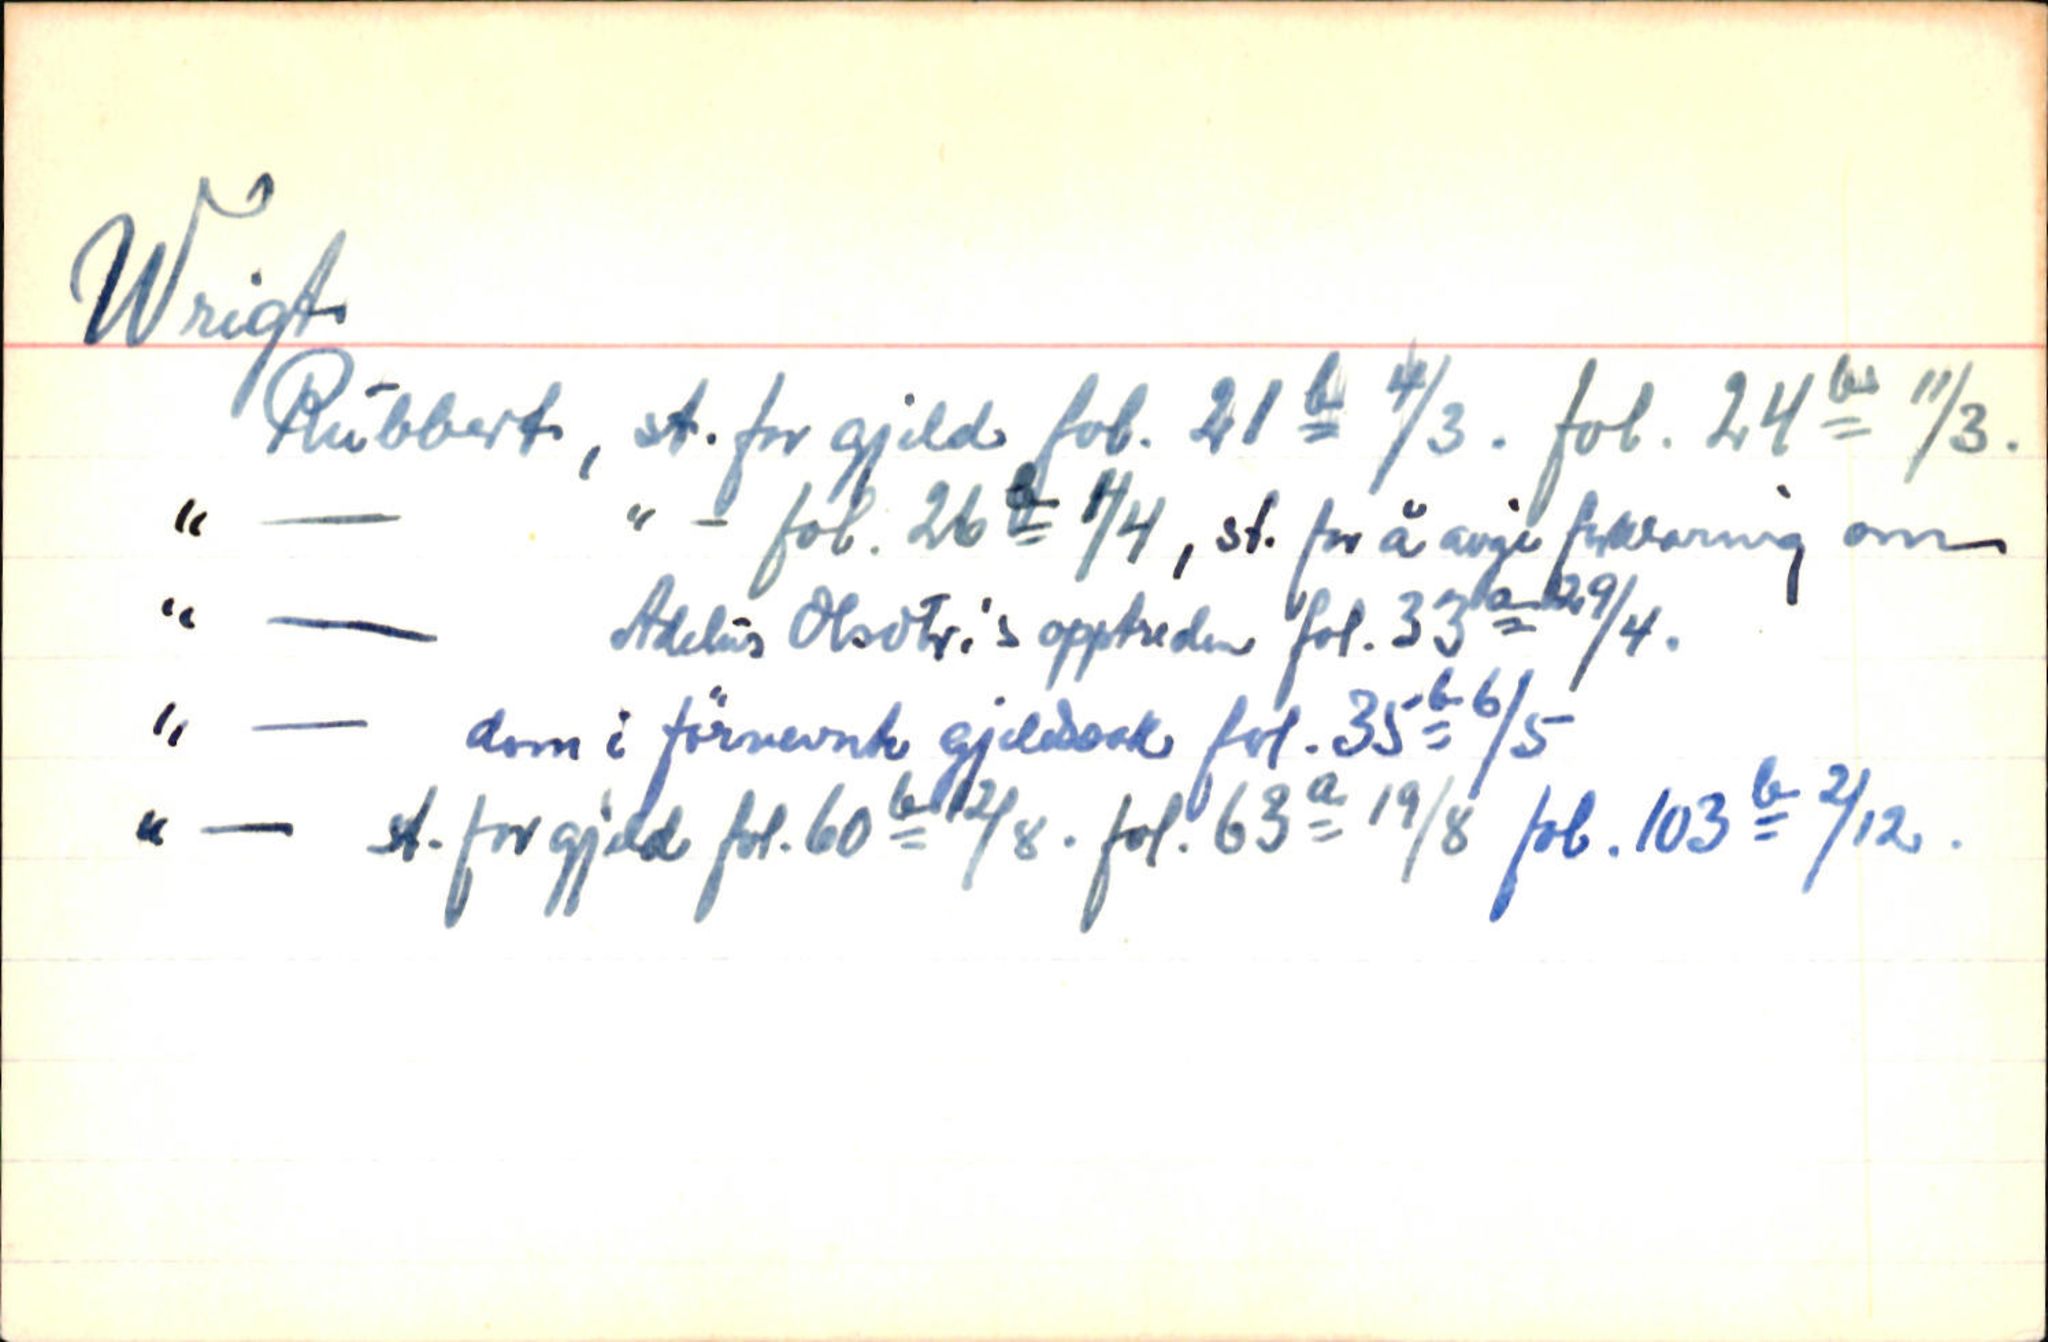 Wrigt
Rübbert, st. for gjeld fol. 21 b 4/3. fol. 24 b 11/3.
" — " – fol. 26 /4, st. for å avgi forklaring om
" — Adelus Olsdtr.'s opptreden fol. 33 a 29/4.
" — dom i förnevnte gjeldssak fol. 35 b 6/5
" — st. for gjeld fol. 60 b 12/8. fol. 63 a 19/8 fol. 103 b 2/12.